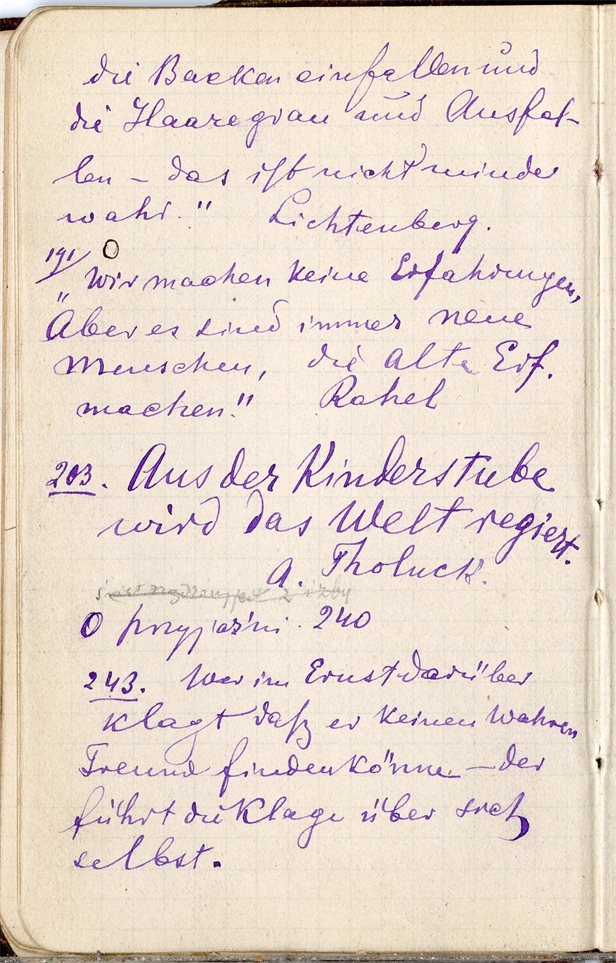 die Backen einfallen und
die Haare grau und Ausfal-
len – das ist nicht minder
wahr." Lichtenberg.
191/ O
„Wir machen keine Erfahrungen,
Aber es sind immer neue
Menschen, die alte Erf.
machen." Rahel
203. Aus der Kinderstube
wird das Welt regiert.
A. Tholuck.
O przyjaźni. 240
243. Wer im Ernst darüber
klagt daß er keinen wahren
Freund finden könne – der
führt die Klage über sich
selbst.